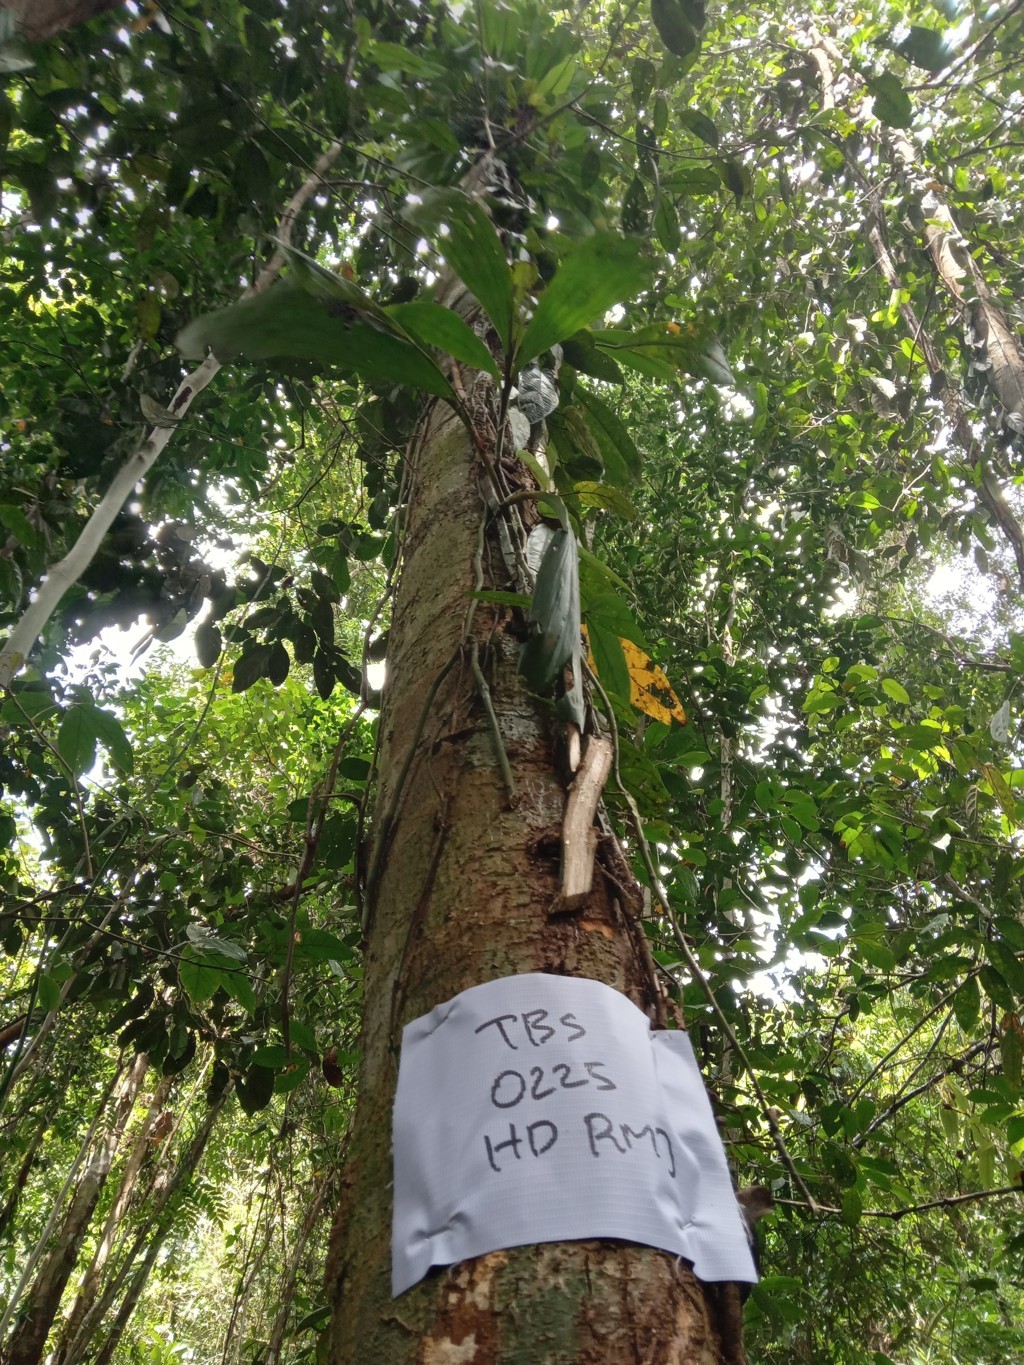 TBS
0225
HD RMJ